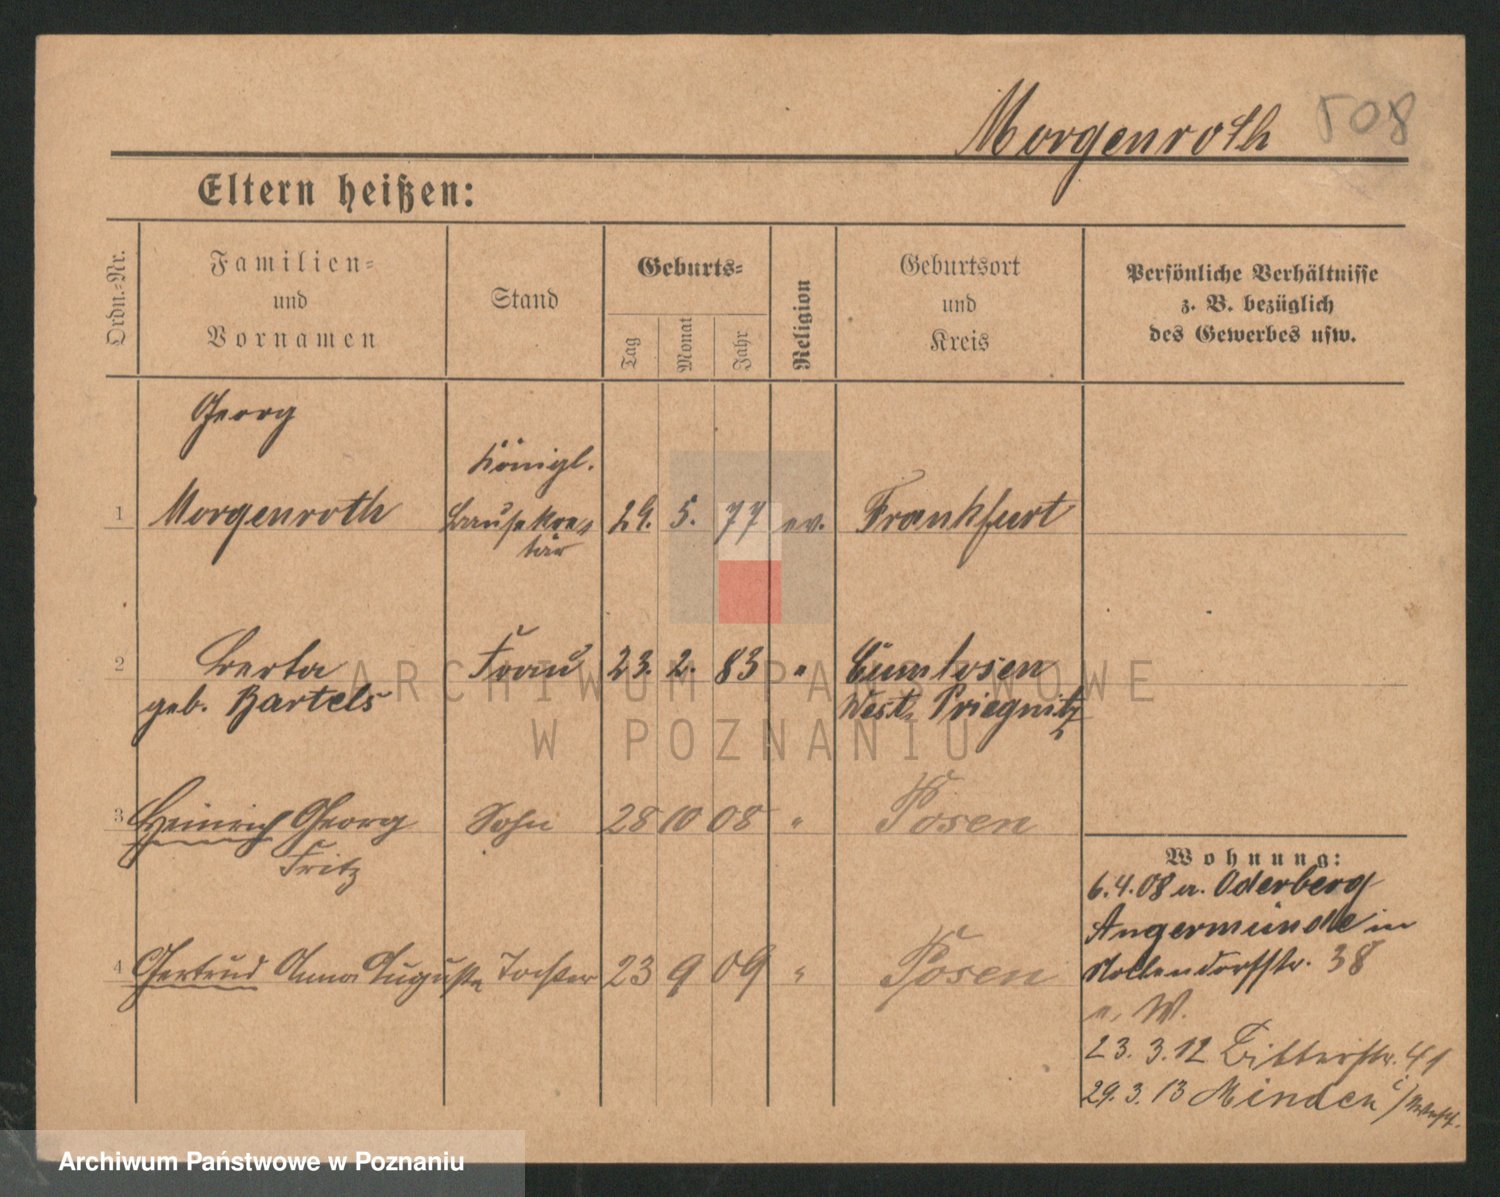 Morgenroth 508
Eltern heißen:
Ordn.-Nr.
Familien-
und
Vornamen
Stand
Geburts-
Tag
Monat
Jahr
Religion
Geburtsort
und
Kreis
Persönliche Verhältnisse
z. B. bezüglich
des Gewerbes usw.
Georg
Königl.
1 Morgenroth Bausekre- 29. 5. 77 ev. Frankfurt
tär
2 Berta Frau 23. 2. 83 " Cumlosen
geb. Bartels West Priegnitz
3 Heinrich Georg Sohn 28 10 08 " Posen
Fritz
4 Gertrud Anna Auguste Tochter 23 9 09 " Posen
Wohnung:
6.4.08 a. Oderberg
Angermünde in
Nollendorfstr. 38
W.
23. 3. 12 Ritterstr. 41
29. 3. 13 Minden i/
ARCHIWUM PAŃSTWOWE
W POZNANIU
Archiwum Państwowe w Poznaniu